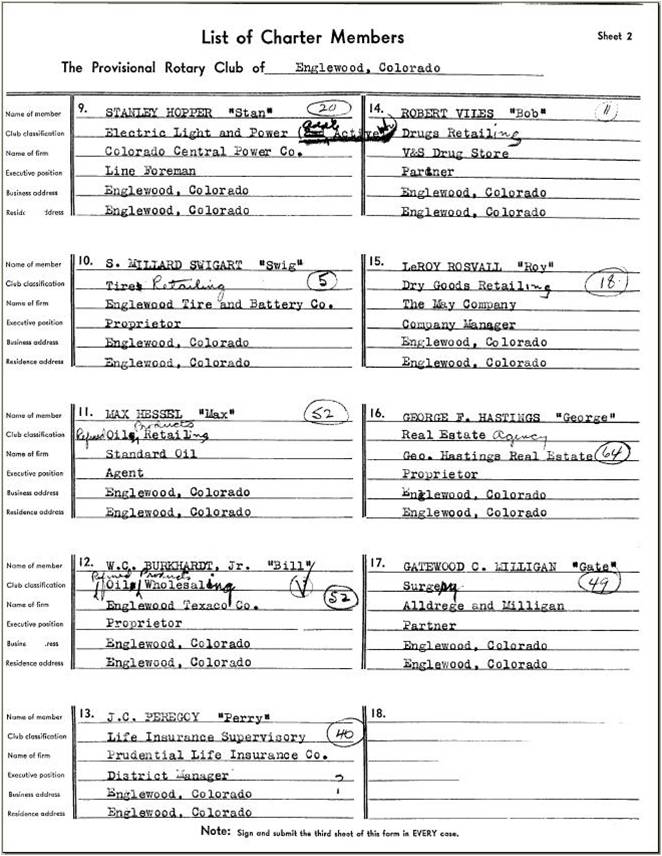 List of Charter Members
Sheet 2
The Provisional Rotary Club of Englewood, Colorado
Name of member 9. STANLEY HOPPER "Stan" 20
Club classification Electric Light and Power Active
Name of firm Colorado Central Power Co.
Executive position Line Foreman
Business address Englewood, Colorado
Englewood, Colorado
14. ROBERT VILES "Bob" 11
Drugs Retailing
V&S Drug Store
Partner
Englewood, Colorado
Englewood, Colorado
Name of member 10. S. MILLARD SWIGART "Swig"
Club classification Tires Retailing 5
Name of firm Englewood Tire and Battery Co.
Executive position Proprietor
Business address Englewood, Colorado
Residence address Englewood, Colorado
15. LeROY ROSVALL "Roy"
Dry Goods Retailing 18
The May Company
Company Manager
Englewood, Colorado
Englewood, Colorado
Name of member 11. MAX HESSEL "Max" 52
Products
Club classification Refined Oils, Retailing
Name of firm Standard Oil
Executive position Agent
Business address Englewood, Colorado
Residence address Englewood, Colorado
16. GEORGE F. HASTINGS "George"
Real Estate Agency
Geo. Hastings Real Estate 64
Proprietor
Englewood, Colorado
Englewood, Colorado
Name of member 12. W.C. BURKHARDT, Jr. "Bill"
Refined Products
Club classification Oils, Wholesaling
Name of firm Englewood Texaco Co. 52
Executive position Proprietor
Englewood, Colorado
Residence address Englewood, Colorado
17. GATEWOOD C. MILLIGAN "Gate"
Surgery 49
Alldrege and Milligan
Partner
Englewood, Colorado
Englewood, Colorado
Name of member 13. J.C. PEREGOY "Perry"
Club classification Life Insurance Supervisory 40
Name of firm Prudential Life Insurance Co.
Executive position District Manager ?
Business address Englewood, Colorado
Residence address Englewood, Colorado
18.
Note: Sign and submit the third sheet of this form in EVERY case.